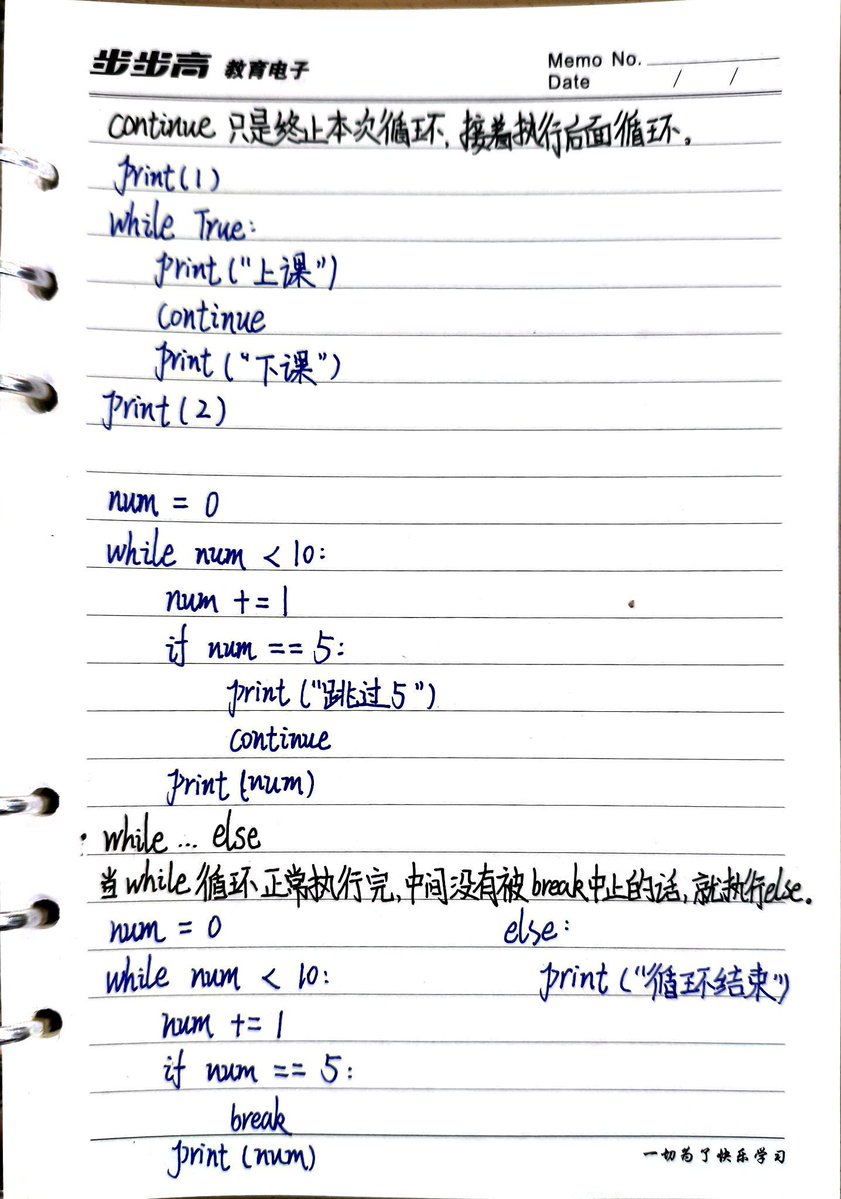 步步高 教育电子
Memo No.
Date / /
continue 只是终止本次循环, 接着执行后面循环。
print(1)
while True:
print("上课")
continue
print("下课")
print(2)
num = 0
while num < 10:
num += 1
if num == 5:
print("跳过5")
continue
print(num)
· while … else
当while循环正常执行完,中间没有被break中止的话,就执行else。
num = 0
while num < 10:
num += 1
if num == 5:
break
print(num)
else:
print("循环结束")
一切为了快乐学习